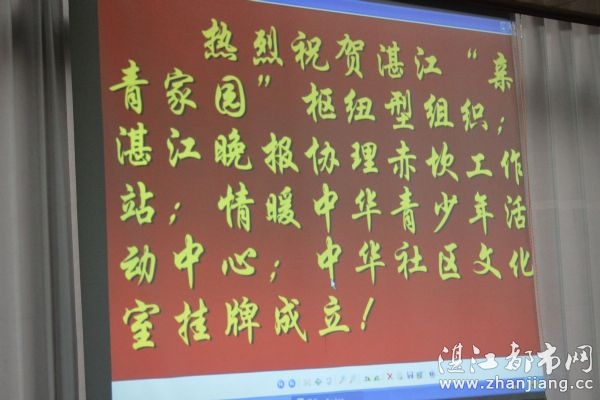 热烈祝贺湛江“亲
青家园”枢纽型组织；
湛江晚报协理赤坎工作
站；情暖中华青少年活
动中心；中华社区文化
室挂牌成立！
湛江都市网
www.zhanjiang.cc